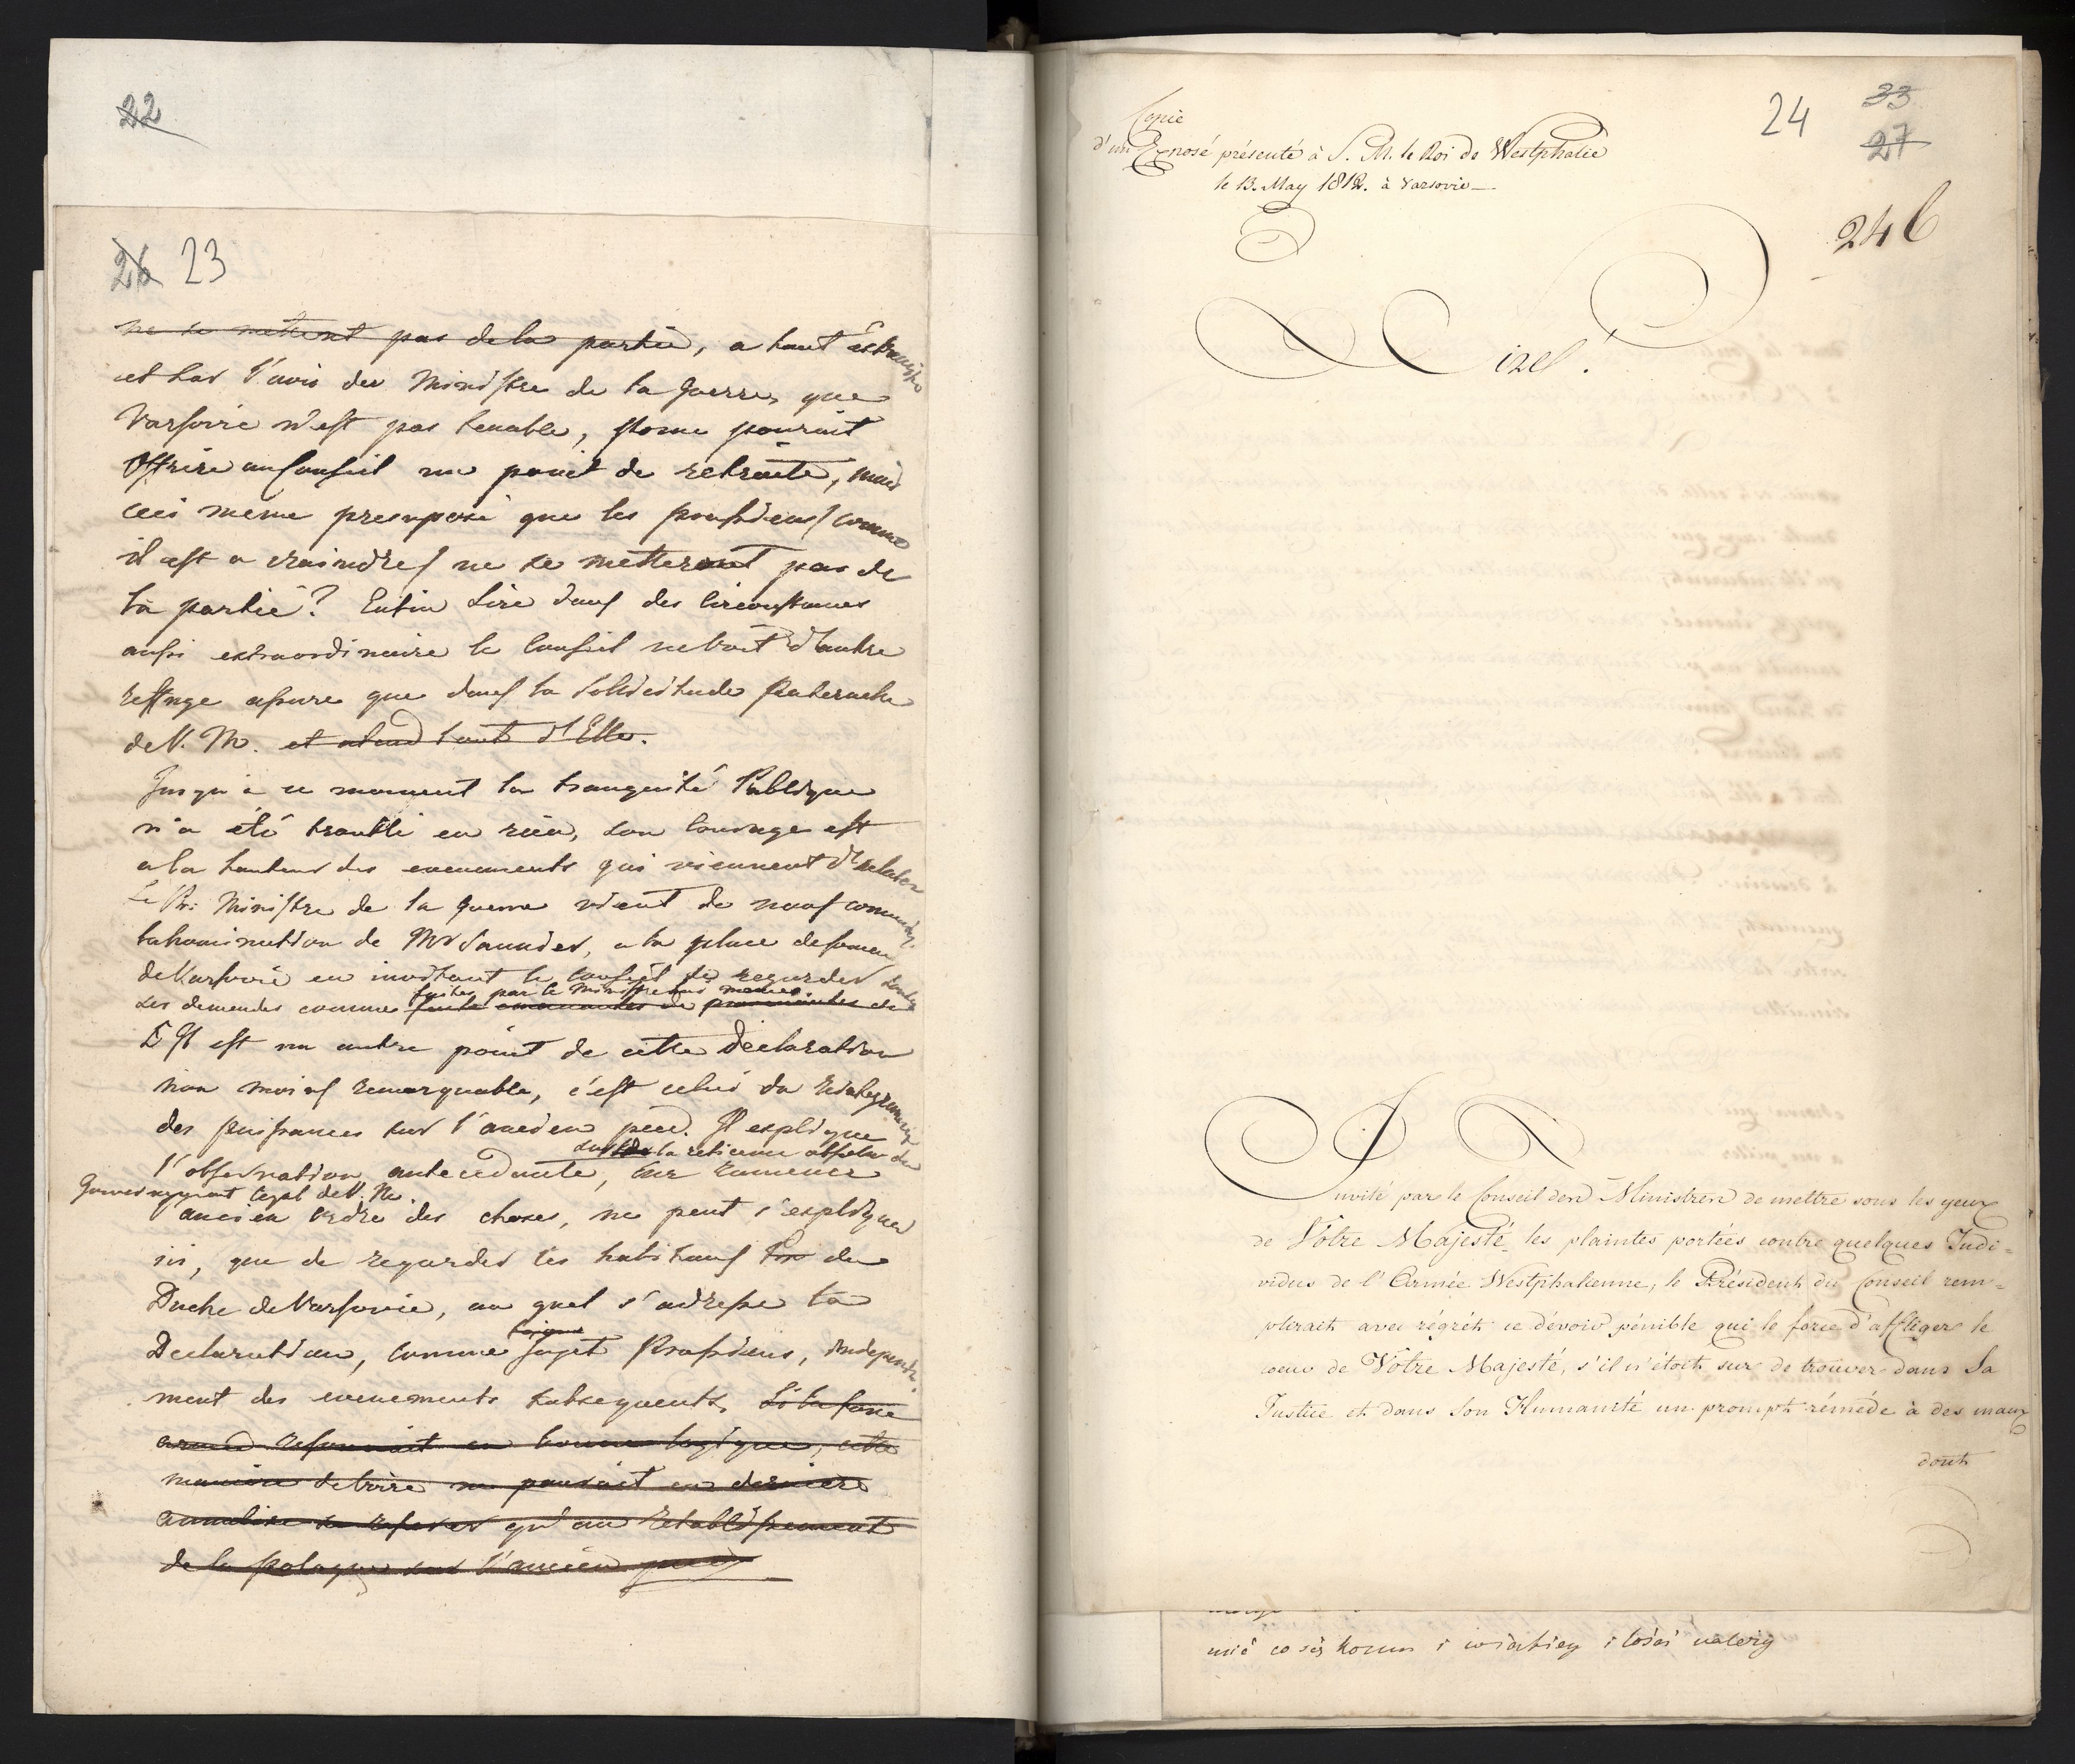 22
26 23
ne se mettent pas de la partie, a tout
et sur l'avis du Ministre de la Guerre, que
Varsovie n'est pas tenable, pourait
Offrire au Conseil un point de retraite, mais
ceci meme presupose que les comme
il est a craindre ne se metteront pas de
la partie? Enfin Sire dans des circonstances
aussi extraordinaire le Conseil ne voit d'autre
reffuge assure que dans la Sollicitude Paternelle
de V. M. et tout d'Elle.
Jusqu'à ce moment la tranquilité Publique
n'a été troublé en rien, son courage est
a la hauteur des evenements qui viennent d'
Le Pr: Ministre de la Guerre vient de nous
la nomination de Mr Saunier, a la place de
de Varsovie en invitant le Conseil de regarder
faites par le Ministre lui meme
ses demandes comme
Il est un autre point de cette Declaration
non moins remarquable, c'est celui du
des puissances sur l'ancien pied. Il explique
sur la reticence absolue du
l'observation antecedente,
Gouvernement legal de V. M.
ancien ordre des choses, ne peut s'expliquer
ici, que de regarder les habitans du
Duche de Varsovie, au quel s'adresse la
Declaration, comme sujet Prussiens, independe-
ment des evenements subsequents. Si la force
en bonne logique, cette
maniere de voire ne pouroit en derniere
qu'au retablissement
de la Pologne sur l'ancien pied
24 33
27
24 b
Copie
d'un Exposé présenté à S. M. le Roi de Westphalie
le 13. May 1812. à Varsovie
Sire!
Invité par le Conseil des Ministres de mettre sous les yeux
de Vôtre Majesté les plaintes portées contre quelques Indi-
vidus de l'Armée Westphalienne, le Président du Conseil rem-
plirait avec régrét ce dévoir pénible qui le force d'affliger le
coeur de Vôtre Majesté, s'il n'étoit sur de trouver dans Sa
Justice et dans Son Humanité un prompt réméde à des maux
dont